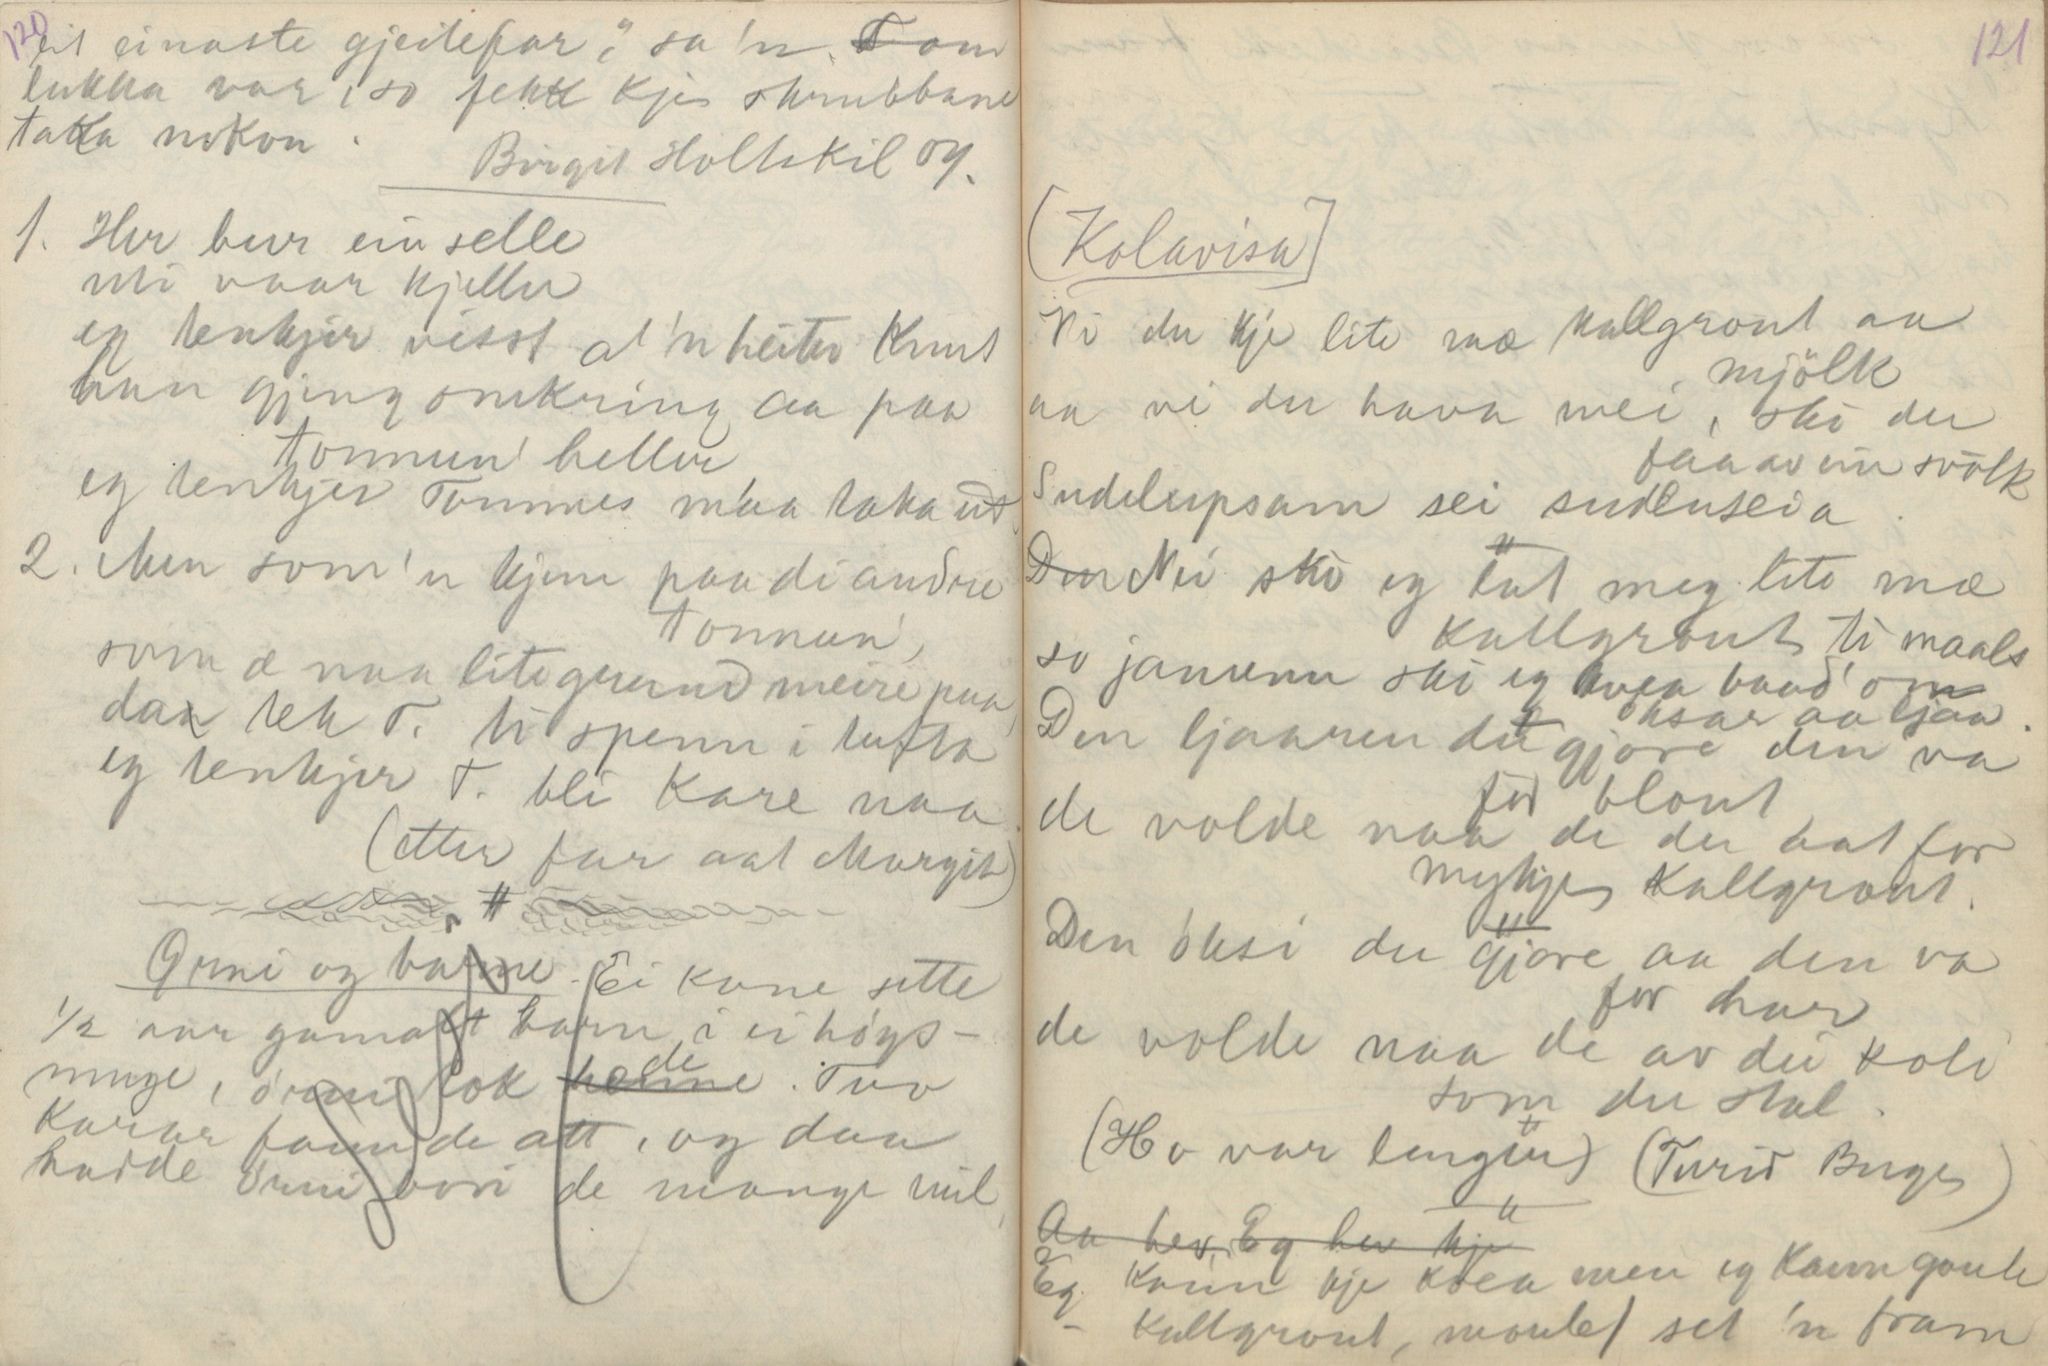 120
eit einaste gjeitefar," sa 'n. T om
lukka var, so fekk kje skrubbane
taka nokon.
Birgit Holtskil og.
1. Her bur ein selle
uti vaar kjeller
eg tenkjer visst at 'n heiter Knut
han gjeng omkring aa paa
tonnun' heller
eg tenkjer Tommes maa taka ut.
2. Men som 'n kjem paa di andre
tonnun',
som æ naa litegrund meire paa,
daa tek T. ti spenn i lufta
eg tenkjer T. bli kare naa.
(etter far aat Margit)
#
Ormi og barne. Ei kone sette
1/2 aar gamalt barn i ei høys-
muge, ørni tok de. Tvo
karar fann de att, og daa
hadde ørni bori de mange mil.
121
[Kolavisa]
Vi du kje lite mæ kallgraut aa
mjölk
aa vi du hava mei, ski du
faa av ein svolk
Sudeleipsam sei sudeluseia.
Den Nei ski eg lut meg lite mæ
kallgraut ti maals
so jamenn ski eg kvea baad' om
øksar aa ljaa.
Den ljaaren du gjore den va
for blaut
de volde naa de du aat for
mykje kallgraut.
Den øksi du gjore aa den va
for har
de volde naa de av dei koli
som du stal.
(Ho var lengeŕ) (Turid Buge)
Aa hev. Eg hev kje
Eg kann kje kvea men eg kann gaule
- kallgraut, moule/ set 'n fram